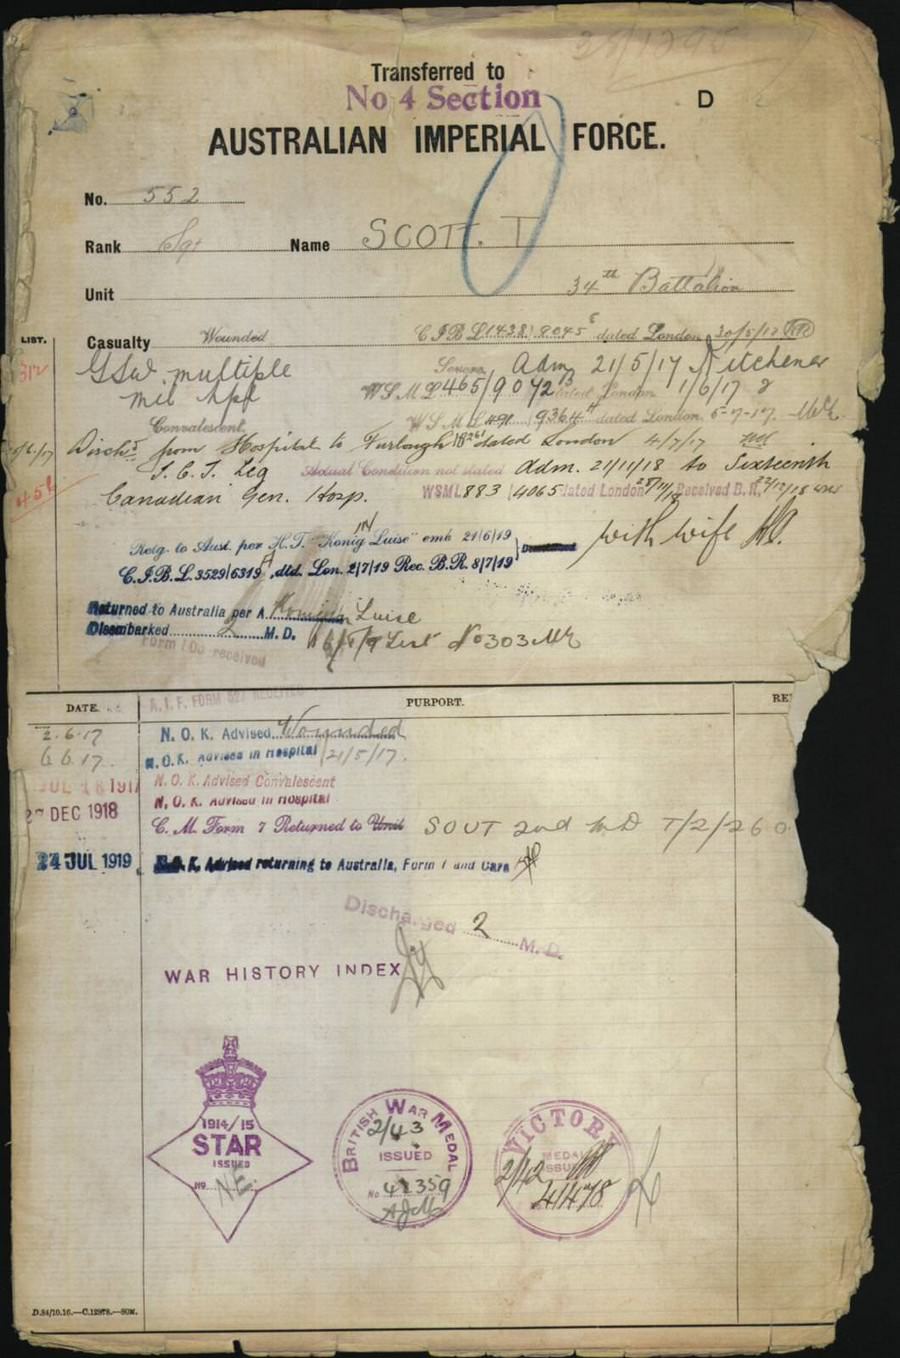 Transferred to
No 4 Section
D
AUSTRALIAN IMPERIAL FORCE.
No. 552
Rank Sgt Name SCOTT. T
Unit 34th Battalion
LIST.
Casualty Wounded C I B L (438) 8045 dated London 30/5/17
312
GSW. multiple Severe Adm 21/5/17 Kitchener
Mil Hpl W S M L 465/9072 dated London 1/6/17
Convalescent W S M L 491 9364 dated London 5-7-17.
Disch. from Hospital to Furlough dated London 4/7/17
456
I. C. T. Leg Actual Condition not stated Adm. 21/11/18 to Sixteenth
Canadian Gen. Hosp. WSML 883 14065 dated London Received B.R.
Retg. to Aust. per H.T. "Konig Luise" emb 21/6/19
with wife
C.I.B.L. 3529/6319, dtd. Lon. 2/7/19 Rec. B.R. 8/7/19
Returned to Australia per A Luise
Disembarked 2 M. D.
List No 303
Form 1 Do received
A.I.F. FORM RECEIVED
DATE. PURPORT.
2.6.17 N. O. K. Advised Wounded
6.6.17. N.O.K. Advised in Hospital 21/5/17.
JUL 18 1917 N. O. K. Advised Convalescent
N. O. K. Advised in Hospital
DEC 1918 C. M. Form 7 Returned to Unit SOUT 2nd MD T/2/260
24 JUL 1919 N.O.K. Advised returning to Australia, Form 1 and Card
Discharged 2 M. D.
WAR HISTORY INDEX
1914/15
STAR
ISSUED
No. N.E.
BRITISH WAR MEDAL
2/43
ISSUED
No 41359
VICTORY
MEDAL
ISSUED
2/42
41478
D.84/10.16.—C.12978.—50M.